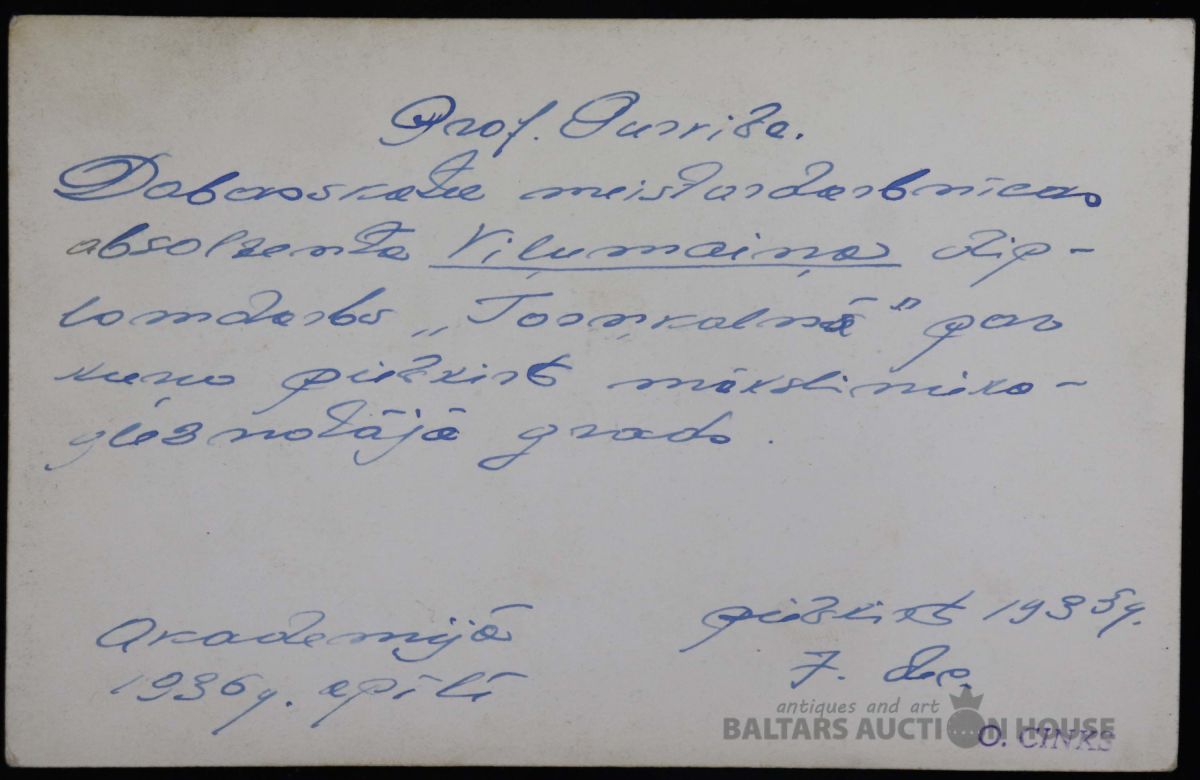 Prof. Purviša.
Dabasskatu meistardarbnīcas
absolventa Vilumaiņa dip-
lomdarbs „Torņkalnā" par
kuru piešķirts mākslinieka-
gleznotāja grads.
Akademijā
1936g. apīlī
piešķirts 1935g.
7. dec.
antiques and art
BALTARS AUCTION HOUSE
O. CINKS